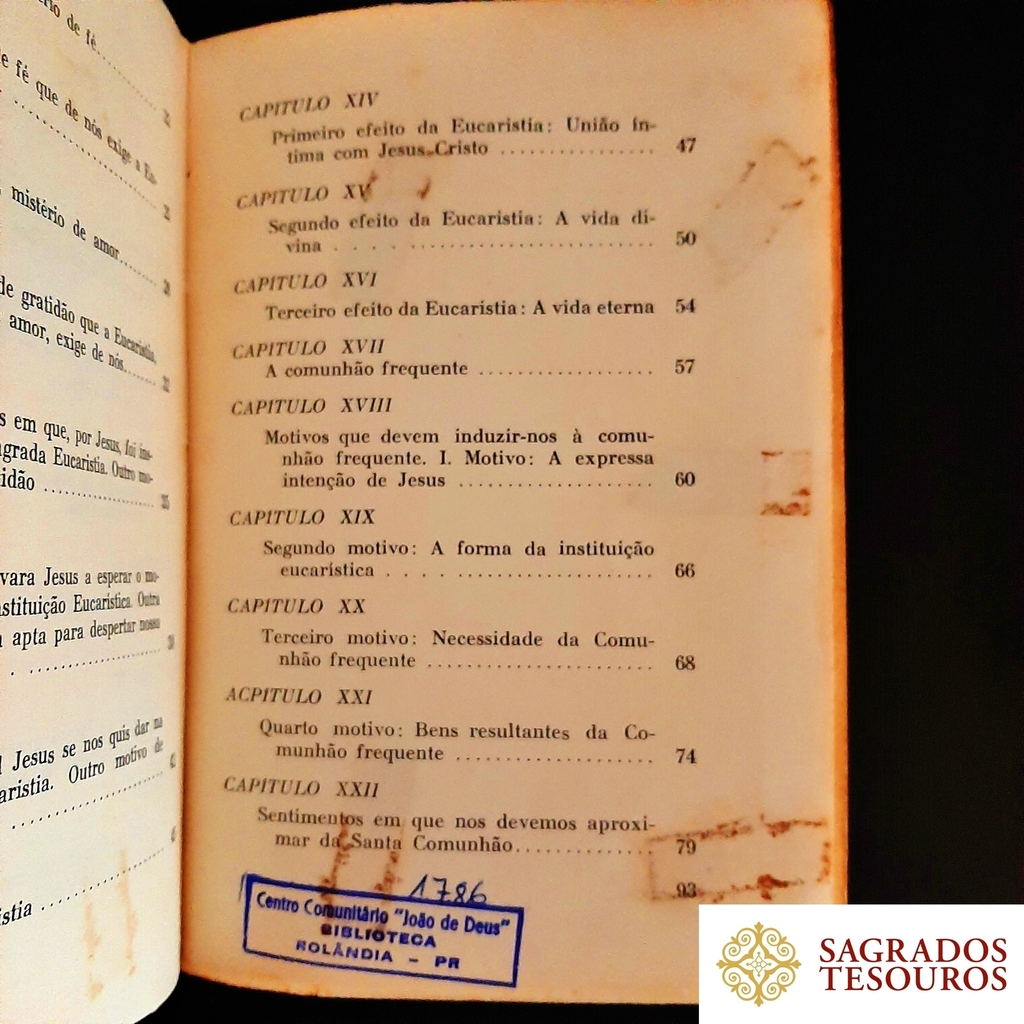 rio de fé
e fé que de nós exige a Eu-
mistério de amor
de gratidão que a Eucaristia,
amor, exige de nós
s em que, por Jesus, foi ins-
grada Eucaristia. Outro mo-
idão
vara Jesus a esperar o mo-
nstituição Eucarística. Outra
apta para despertar nosso
Jesus se nos quis dar na
aristia. Outro motivo de
istia
CAPITULO XIV
Primeiro efeito da Eucaristia: União ín-
tima com Jesus Cristo .................. 47
CAPITULO XV
Segundo efeito da Eucaristia: A vida di-
vina . . . . .............................. 50
CAPITULO XVI
Terceiro efeito da Eucaristia: A vida eterna 54
CAPITULO XVII
A comunhão frequente .................... 57
CAPITULO XVIII
Motivos que devem induzir-nos à comu-
nhão frequente. I. Motivo: A expressa
intenção de Jesus ...................... 60
CAPITULO XIX
Segundo motivo: A forma da instituição
eucarística . . . . ...................... 66
CAPITULO XX
Terceiro motivo: Necessidade da Comu-
nhão frequente .......................... 68
ACPITULO XXI
Quarto motivo: Bens resultantes da Co-
munhão frequente ....................... 74
CAPITULO XXII
Sentimentos em que nos devemos aproxi-
mar da Santa Comunhão................ 79
93
1786
Centro Comunitário "João de Deus"
BIBLIOTECA
ROLÂNDIA - PR
SAGRADOS
TESOUROS